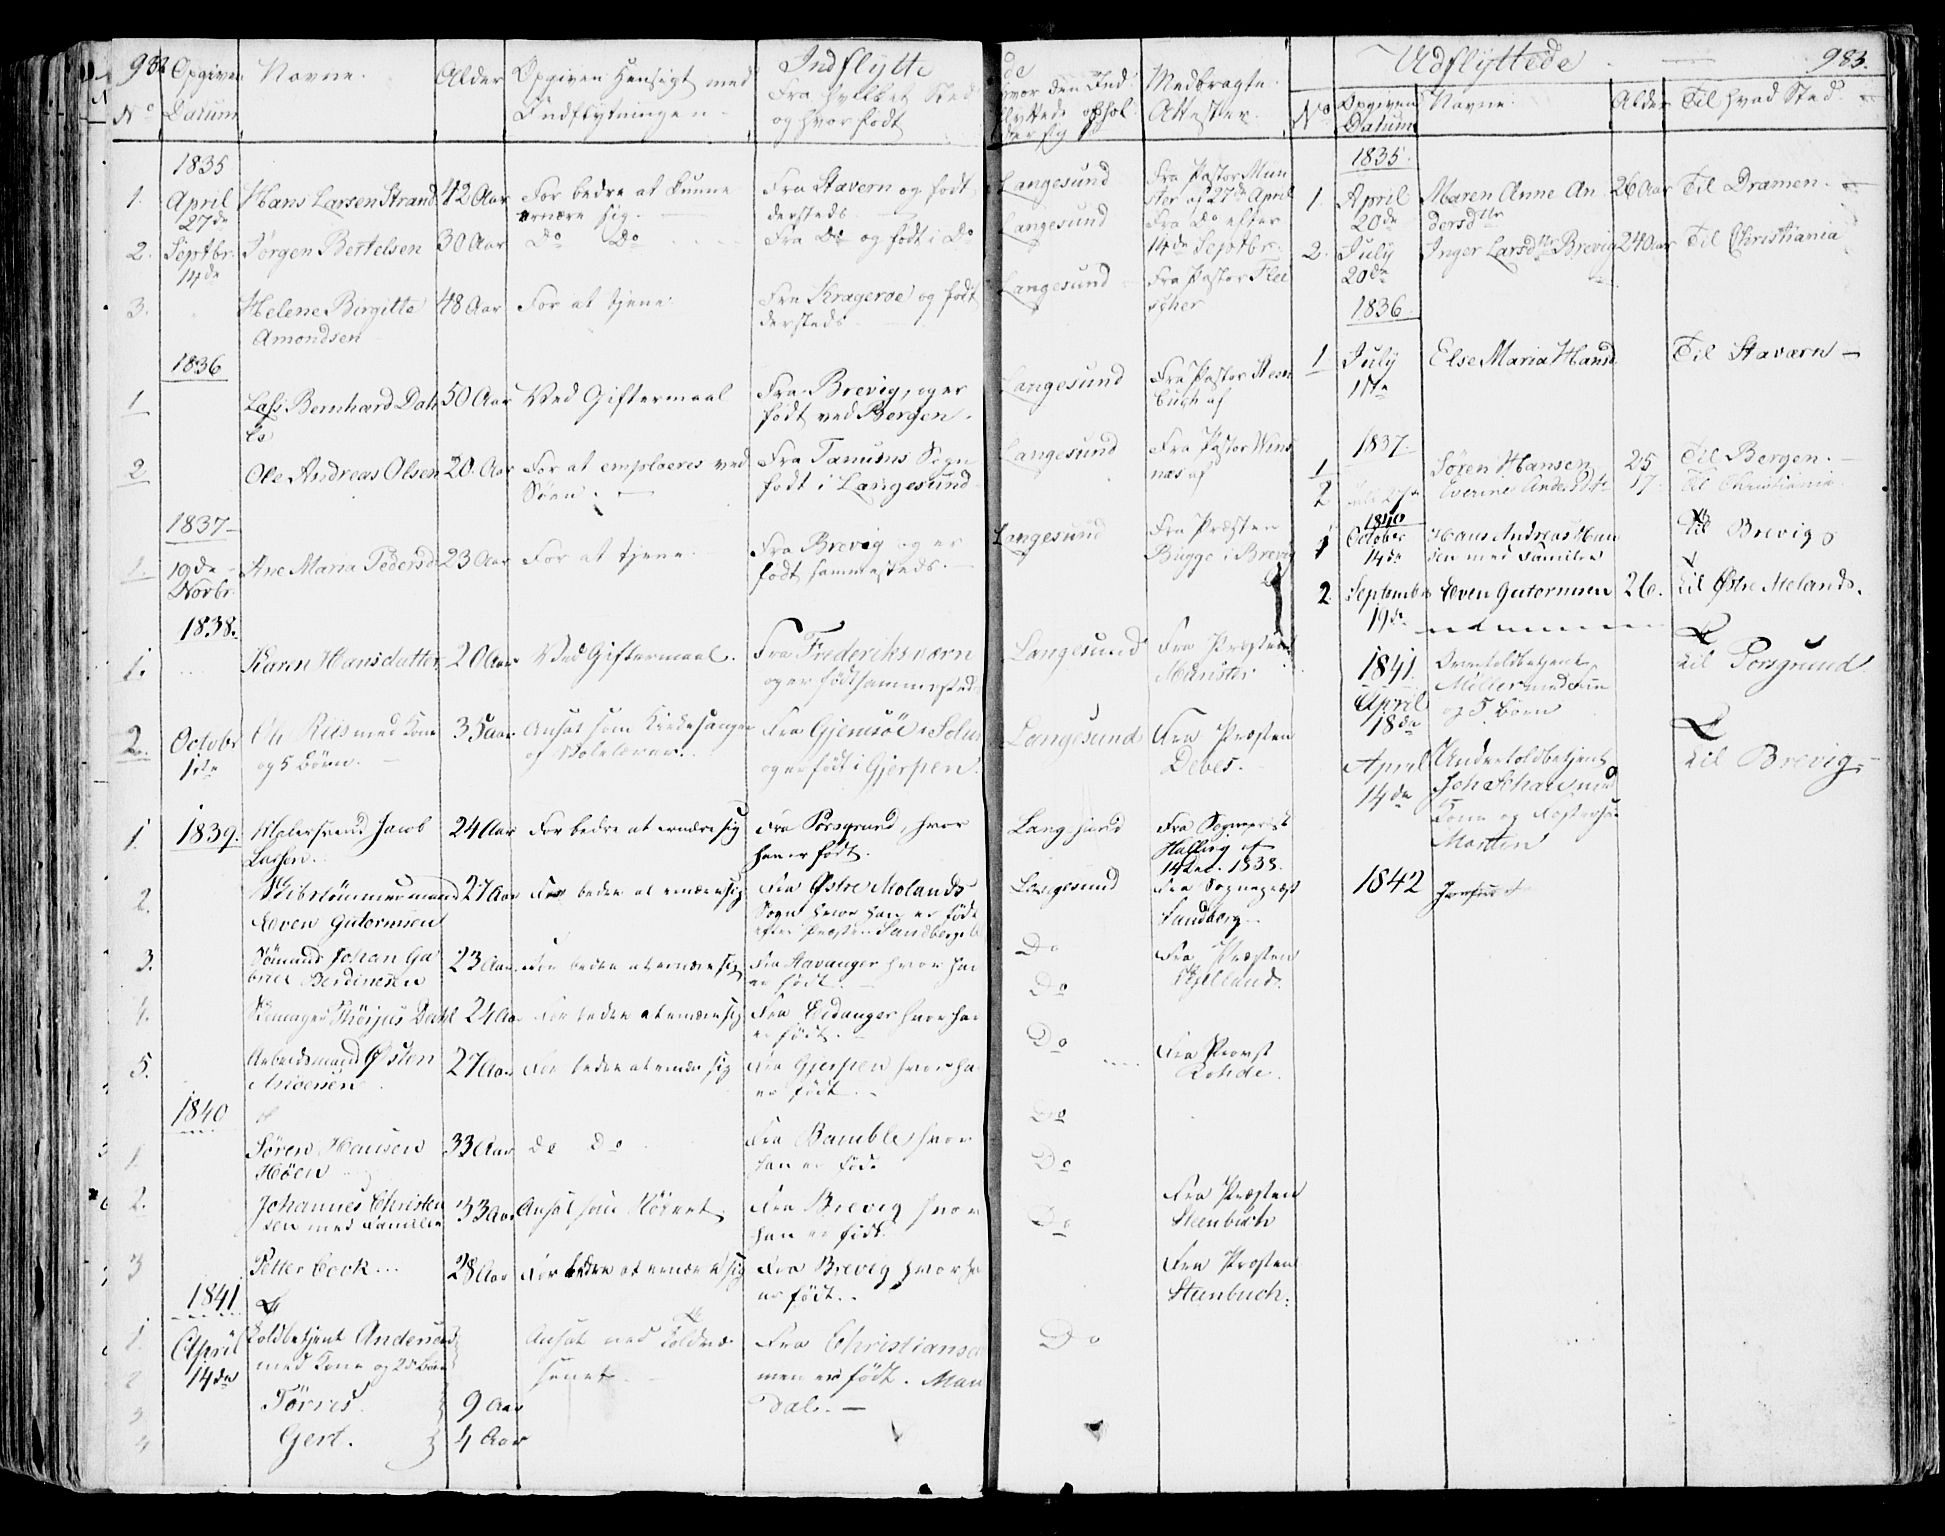 982
Opgiven
Datum
No
Navne.
Alder
Opgiven Hensigt med
Indflytningen.
Indflytte
Fra hvilket Sted
og hvor født
1835
1. April 27de Hans Larsen Strand 42 Aar For bedre at kunne
ernære sig. Fra Stavern og født
dersteds.
2. Septbr. 14de Jørgen Bertelsen 30 Aar Do Do Fra Do og født i Do
3. Helene Birgitte
Amondsen 48 Aar For at tjene. Fra Kragerøe og født
dersteds.
1836
1 Bernhard 50 Aar Ved Giftermaal Fra Brevig, og er
født ved Bergen.
2 Ole Andreas Olsen 20 Aar For at emploeres ved
Søen. Fra Tanums Sogn
født i Langesund
1837
1. 19de Novbr. Ane Maria Pedersd 23 Aar For at tjene Fra Brevig og er
født sammesteds.
1838.
1. Karen Hansdatter 20 Aar Ved Giftermaal. Fra Frederiksværn
og er født sammested
2. Octobr 1ste Riis med Kone
og 5 Børn. 35 Aar Ansat som Kirkesanger
og Skolelærer. Fra Gjemsøe
og er født i Gjerpen.
1. 1839. Jacob
Larsen. 24 Aar For bedre at ernære sig Fra Porsgrund, hvor
han er født.
2. Skibstømmermand
Even Gutormsen 27 Aar For bedre at ernære sig Fra Østre Molands
Sogn hvor han er født
efter Præsten Sandberg
3. Sømand Johan Ga
briel Berdinesen 23 Aar For bedre at ernære sig Fra Stavanger hvor han
er født.
4. Dahl 24 Aar For bedre at ernære sig Fra Eidanger hvor han
er født.
5. Arbeidsmand Østen
27 Aar For bedre at ernære sig Fra Gjerpen hvor ha
er født.
1840
1. Søren Hansen
Høen 33 Aar do Do Fra Bamble hvor
han er født
2. Johannes Christen
sen med Familie 33 Aar Ansat som Fra Brevig hvor
han er født.
3 Petter Cook 28 Aar For bedre at ernære sig Fra Brevig hvor ha
er født.
1841
1. April
14de Toldbetjent Andersen
med Kone og 2de Børn Ansat ved Toldvæ
senet. Fra Christians
men er født. Man
dal.
2
3 Tørris. 9 Aar
4 Gert. 4 Aar
de
hvor den Ind
flyttede ophol
der sig
Medbragte
Attester.
Langesund Fra Pastor Mün
ster af 27de April
Langesund Fra Do efter
14de Septbr.
Langesund Fra Pastor Flei
scher
Langesund Fra Pastor Steen
buch af
Langesund Fra Pastor Wins
næs af
Langesund Fra Præsten
Bugge i Brevig
Langesund Fra Præsten
Münster
Langesund Fra Præsten
Debes.
Langesund Fra Sognepræst
Halling af
14 Dec. 1838.
Langesund Fra Sognepræst
Sandberg
Do Fra Præsten
Kjelland.
Do
Do Fra Provst
Rohde.
Do
Do Fra Præsten
Steenbuch
Do Fra Præsten
Steenbuch.
Do
Udflyttede
983.
No
Opgiven
Datum
Navne.
Alder
Til hvad Sted.
1835.
1. April
20de Maren Anne An
dersdtr 26 Aar Til Dramen.
2. July
20de Inger Larsdtr Brevig 24 Aar Til Christiania
1836.
1 July
1ste Else Maria Hansd Til Staværn
1837.
1 Søren Hansen 25 Til Bergen.
2 Everine Andersdtr 17 Til Christiania.
1840
1 October
14de Hans Andreas Han
sen med Familie Til Brevig
2 September
19de Even Gutormsen 26. til Østre Molands.
1841.
April
18de Overtoldbetjent
Müller med
og 5 Børn til Porsgrund
April
14de Undertoldbetjent
Joh Schaer med
Kone og
Morten til Brevig
1842